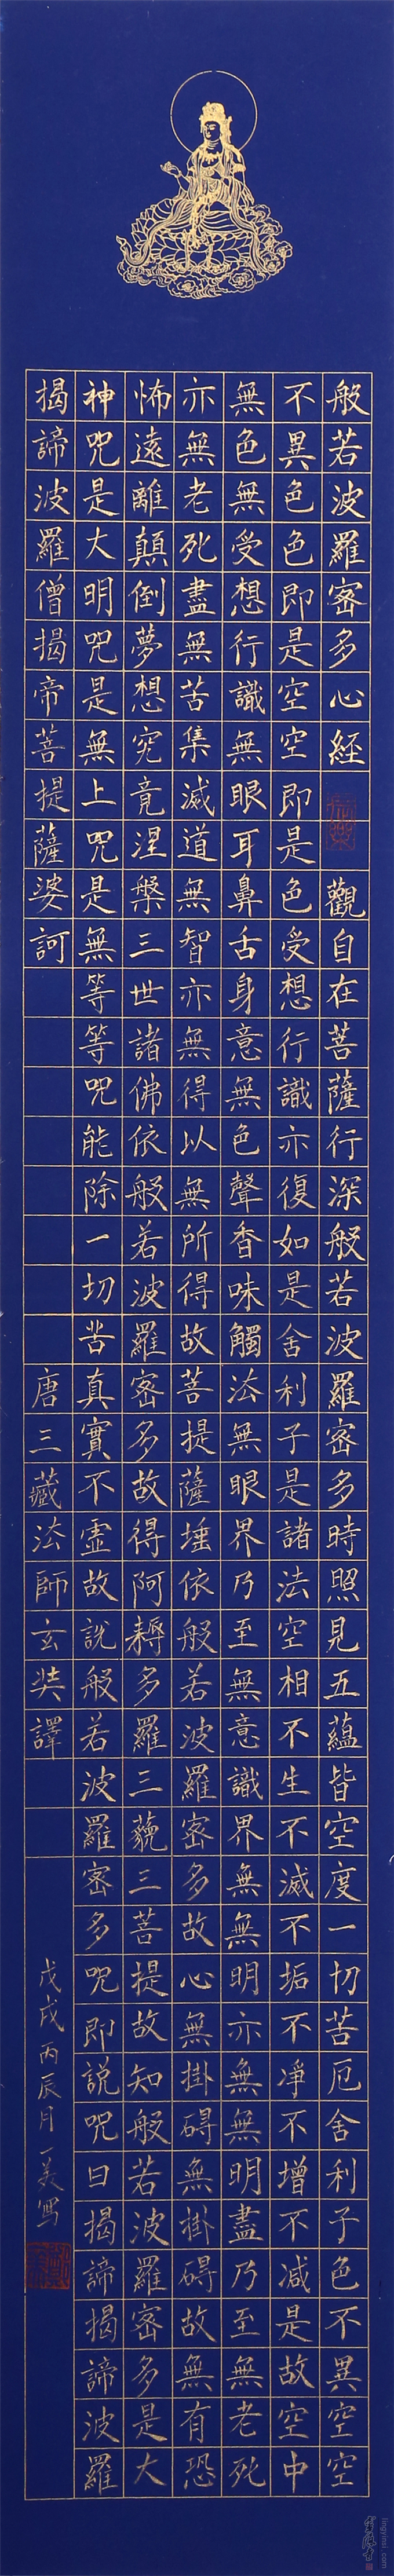 般若波羅密多心經 觀自在菩薩行深般若波羅密多時照見五蘊皆空度一切苦厄舍利子色不異空空
不異色色即是空空即是色受想行識亦復如是舍利子是諸法空相不生不滅不垢不淨不增不減是故空中
無色無受想行識無眼耳鼻舌身意無色聲香味觸法無眼界乃至無意識界無無明亦無無明盡乃至無老死
亦無老死盡無苦集滅道無智亦無得以無所得故菩提薩埵依般若波羅密多故心無掛礙無掛礙故無有恐
怖遠離顛倒夢想究竟涅槃三世諸佛依般若波羅密多故得阿耨多羅三藐三菩提故知般若波羅密多是大
神咒是大明咒是無上咒是無等等咒能除一切苦真實不虛故說般若波羅密多咒即說咒曰揭諦揭諦波羅
揭諦波羅僧揭帝菩提薩婆訶 唐三藏法師玄奘譯
戊戌丙辰月一美寫
lingyinsi.com